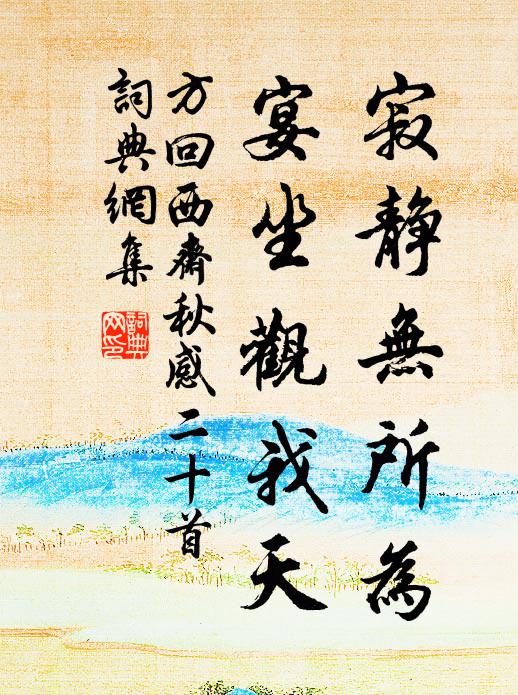 寂靜無所為
宴坐觀我天
方回西齋秋感二十首
詞典網集
詞典
网印